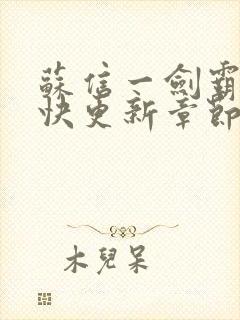 蘇信一劍霸
快更新章節
木兒呆